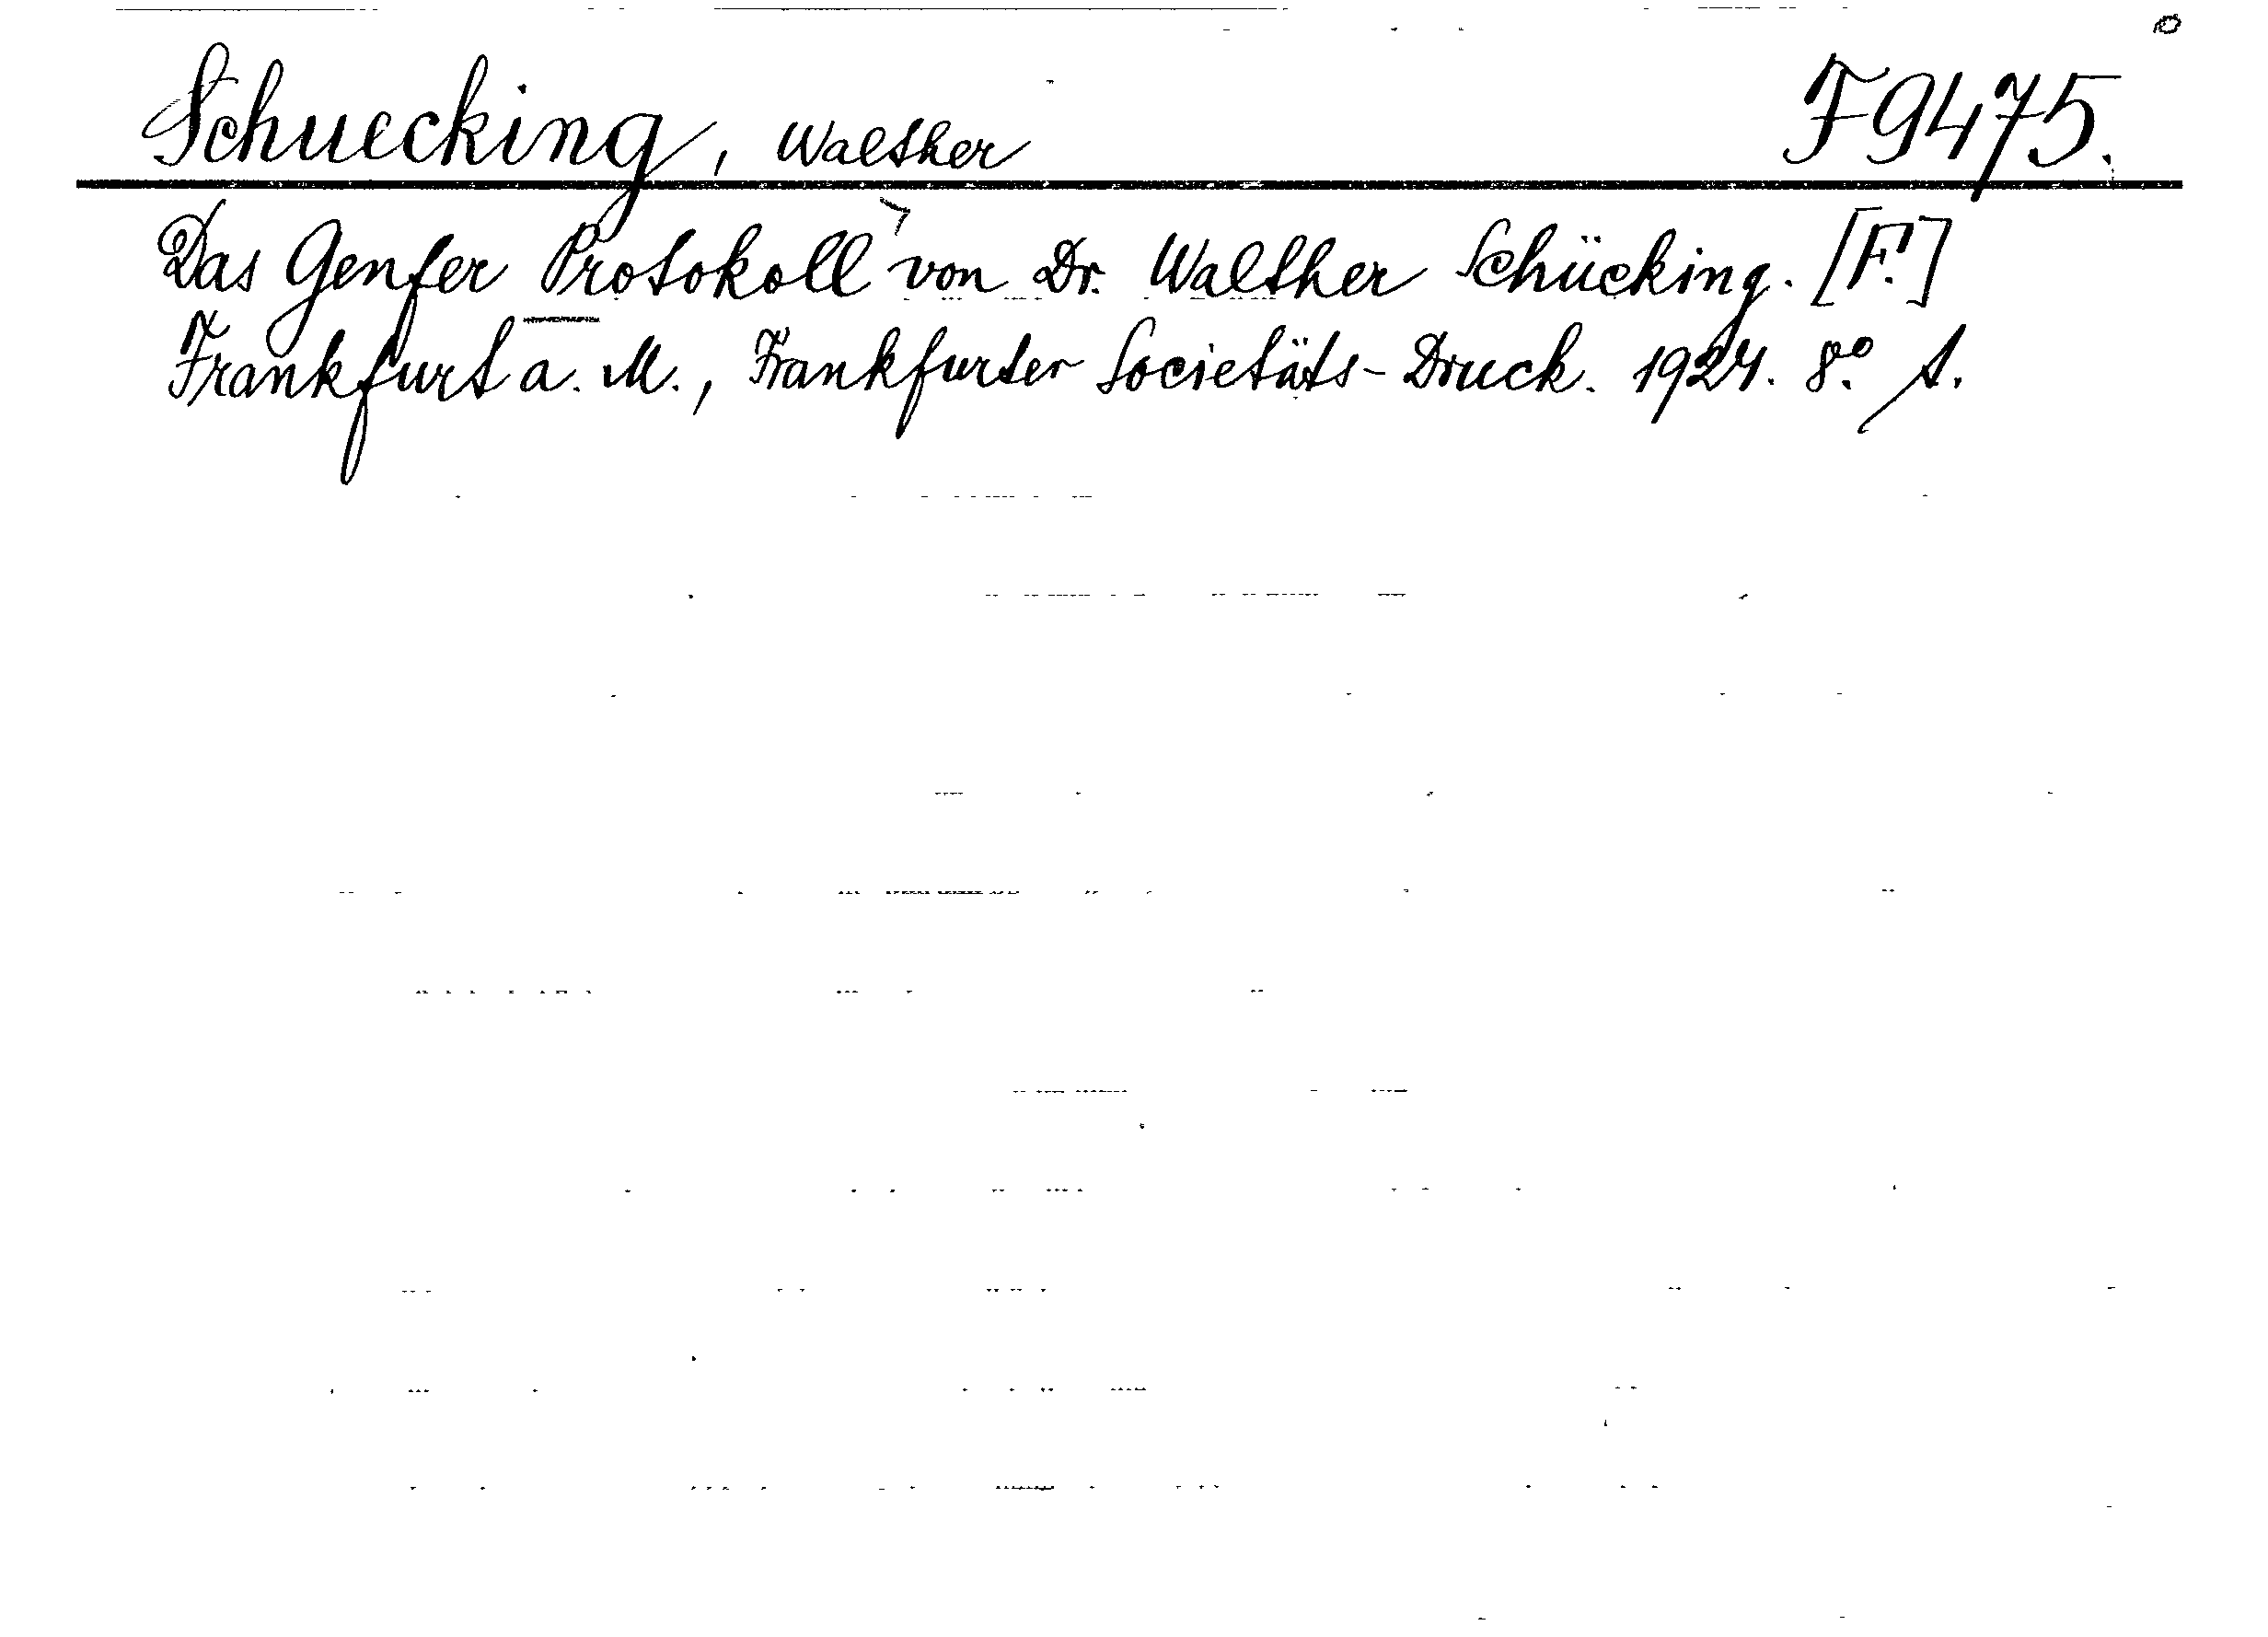 Schuecking, Walther F9475.
Das Genfer Protokoll von Dr. Walther Schücking. [F.]
Frankfurt a. M., Frankfurter Societäts-Druck. 1924. 8.º